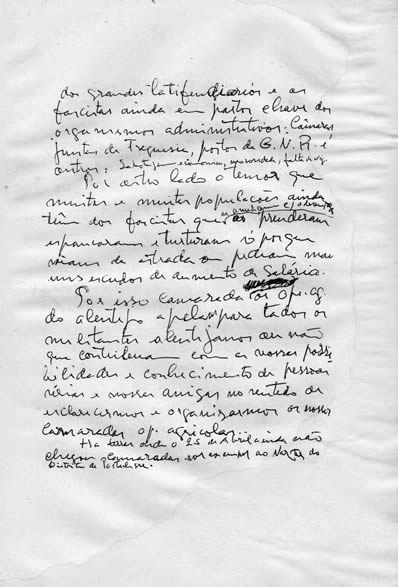 dos grandes latifundiarios e os
fascistas ainda em postos chave dos
organismos administrativos: Câmaras
Juntas de Freguesia, postos da G.N.R. e
outros: Sabotagem economica,
Por outro lado o temor que
muitas e muitas populações ainda
têm dos fascistas que os prenderam
espancaram e torturaram só porque
vinham da estrada ou pediam mais
uns escudos de aumento de Salário.
Por isso camaradas os Op. ag.
do alentejo apelam para todos os
militantes alentejanos ou não
que contribuam com as vossas possi
bilidades e conhecimento de pessoas
e vossos amigos no sentido de
esclarecermos e organizarmos os nossos
camaradas op. agricolas...
Há terras onde o 25 de Abril ainda não
chegou camaradas por exemplo ao Norte do
Distrito de